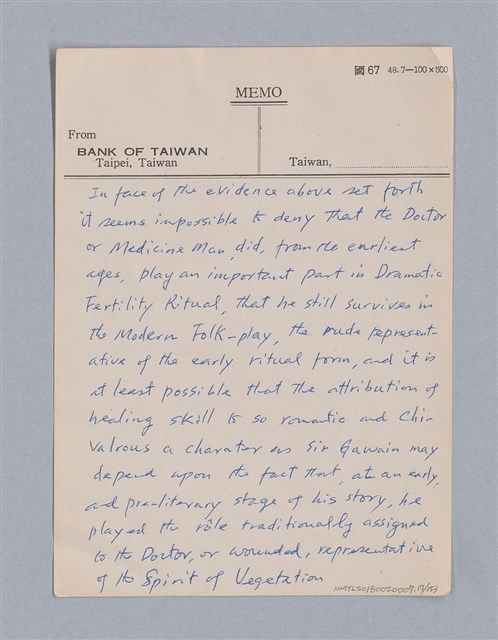 國 67 48.7—100×500
MEMO
From
BANK OF TAIWAN
Taipei, Taiwan
Taiwan,
In face of the evidence above set forth
it seems impossible to deny that the Doctor
or Medicine Man, did, from the earliest
ages, play an important part in Dramatic
Fertility Ritual, that he still survives in
the Modern Folk-play, the rude represent-
ative of the early ritual form, and it is
at least possible that the attribution of
healing skill to so romantic and Chi-
valrous a charater as Sir Gawain may
depend upon the fact that, at an early,
and pre-literary stage of his story, he
played the rôle traditionally assigned
to the Doctor, or wounded, representative
of the Spirit of Vegetation
NMTL20180020007.17/153